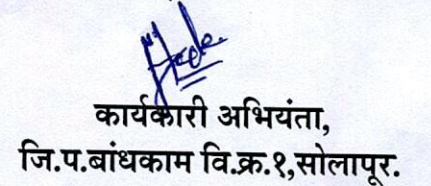 कार्यकारी अभियंता,
जि.प.बांधकाम वि.क्र.१,सोलापूर.